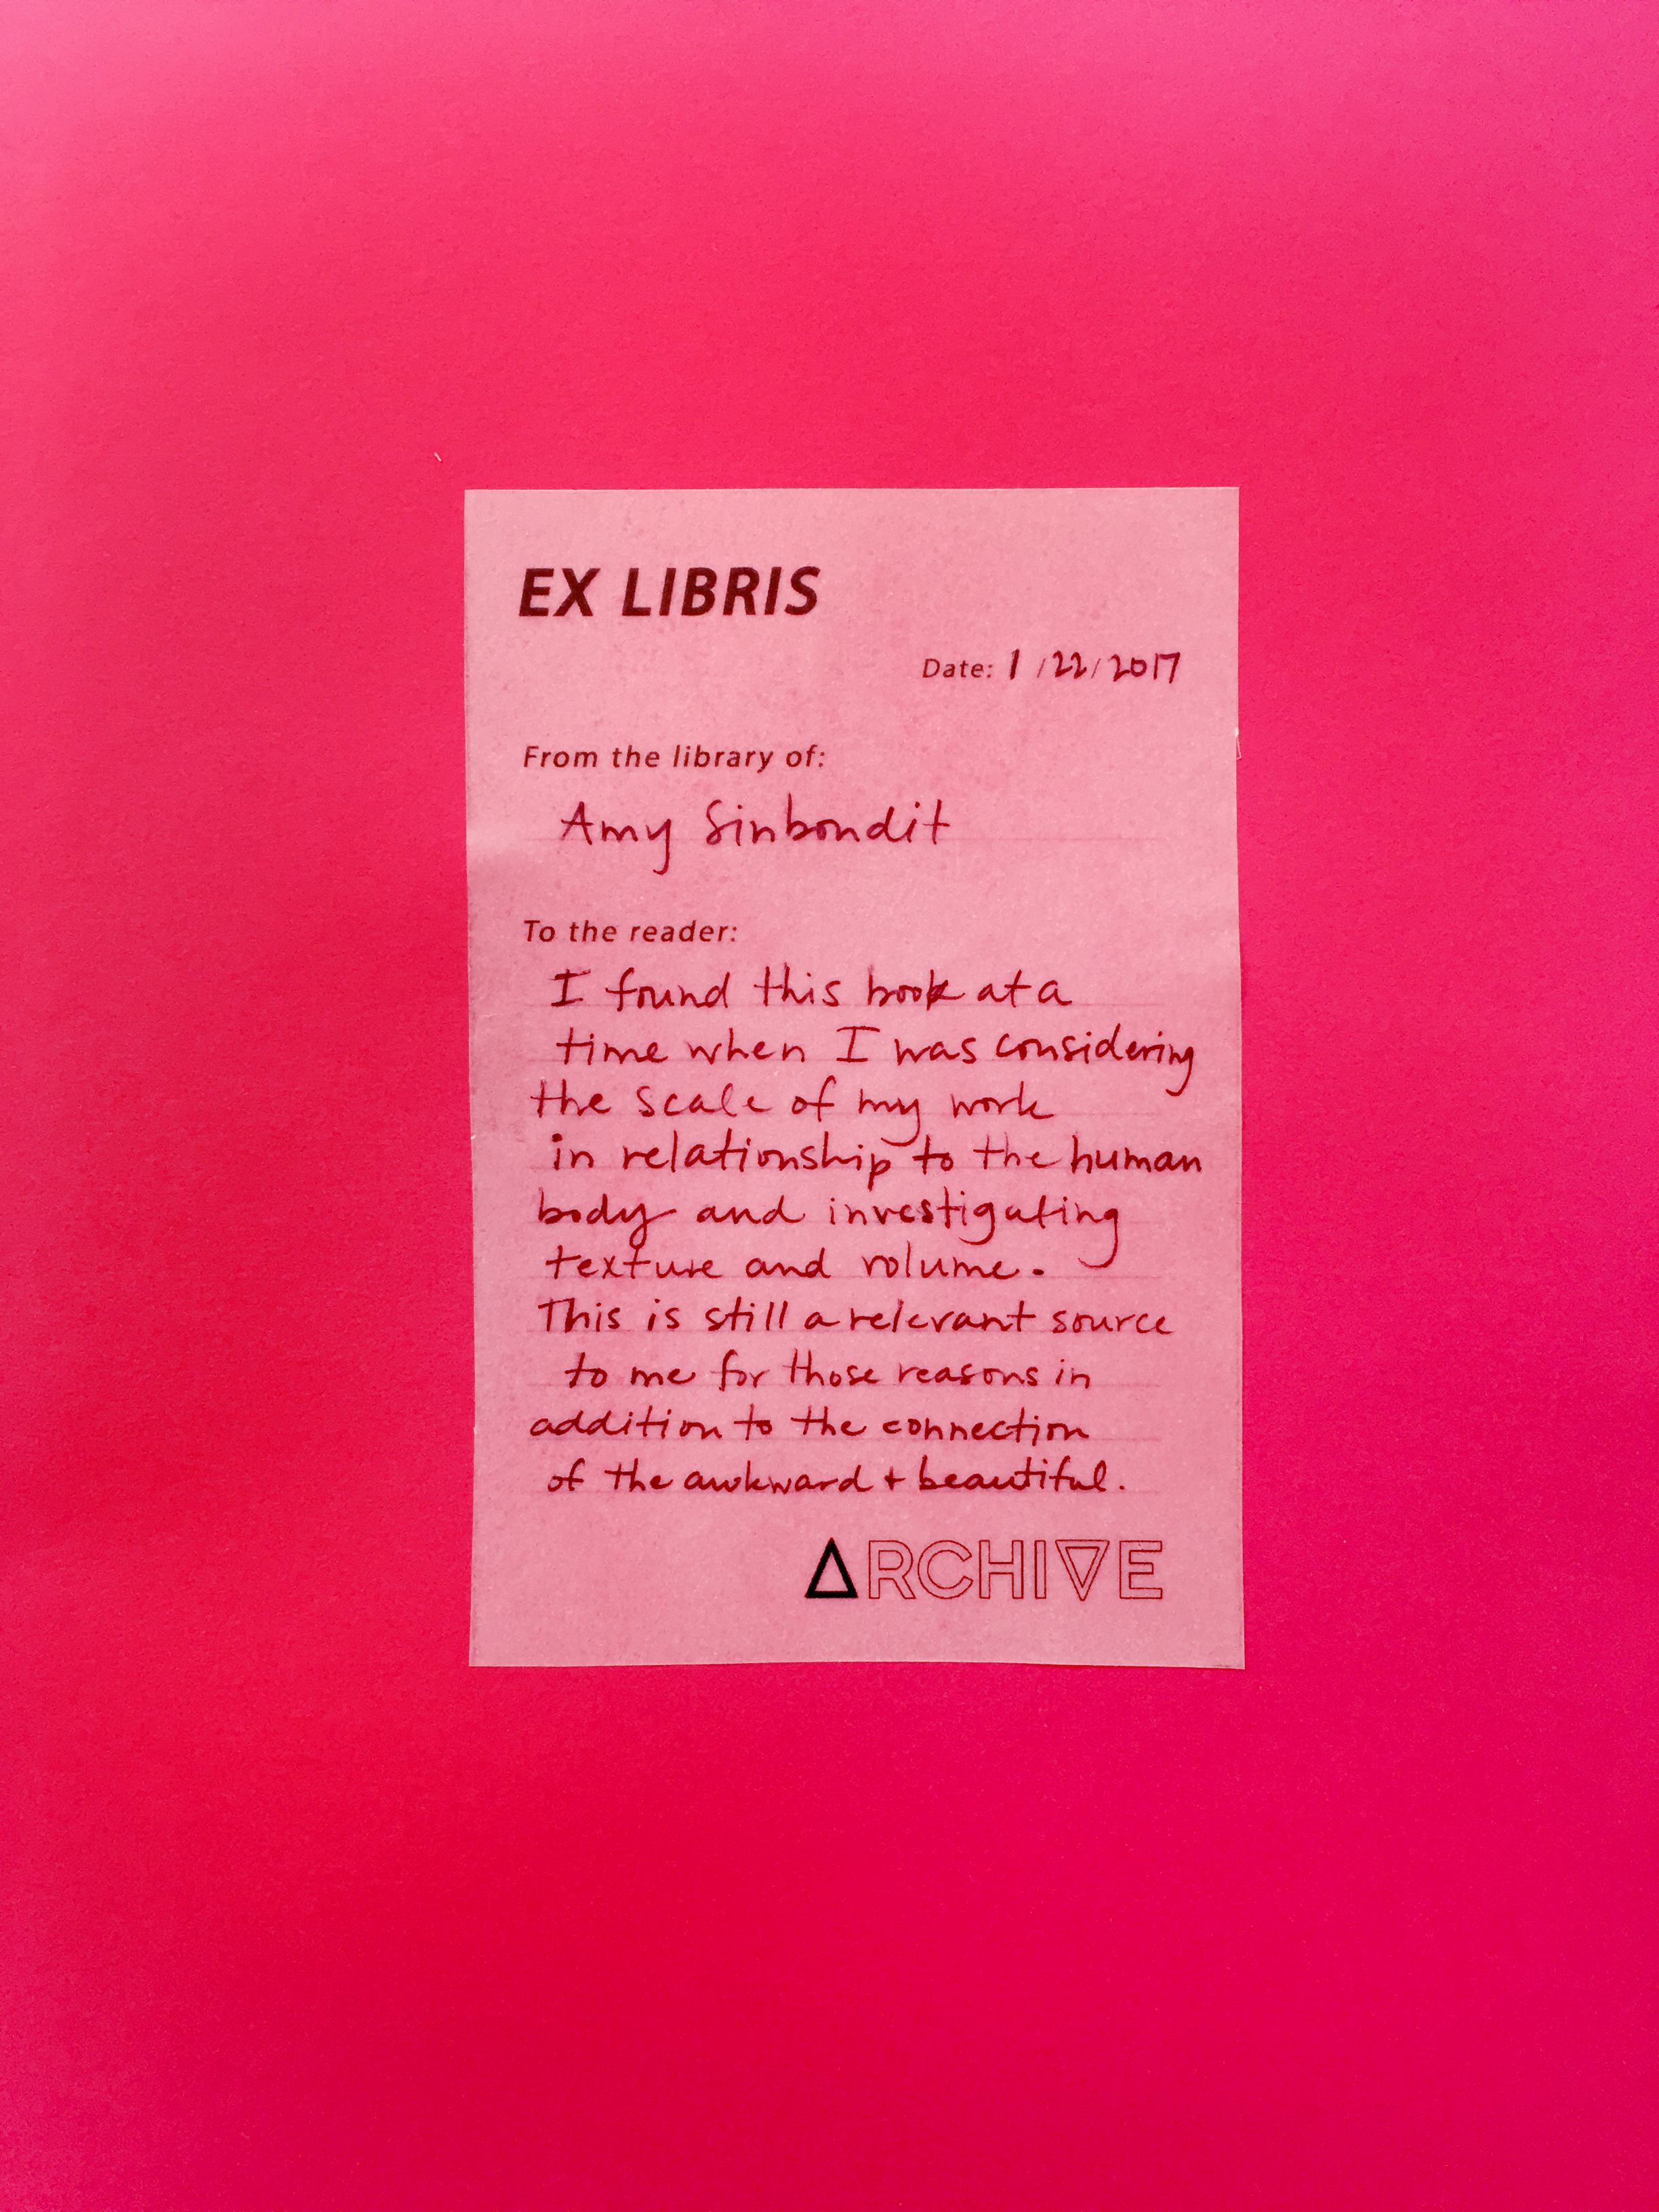 EX LIBRIS
Date: 1/22/2017
From the library of:
Amy Sinbondit
To the reader:
I found this book at a
time when I was considering
the scale of my work
in relationship to the human
body and investigating
texture and volume.
This is still a relevant source
to me for those reasons in
addition to the connection
of the awkward + beautiful.
ARCHIVE